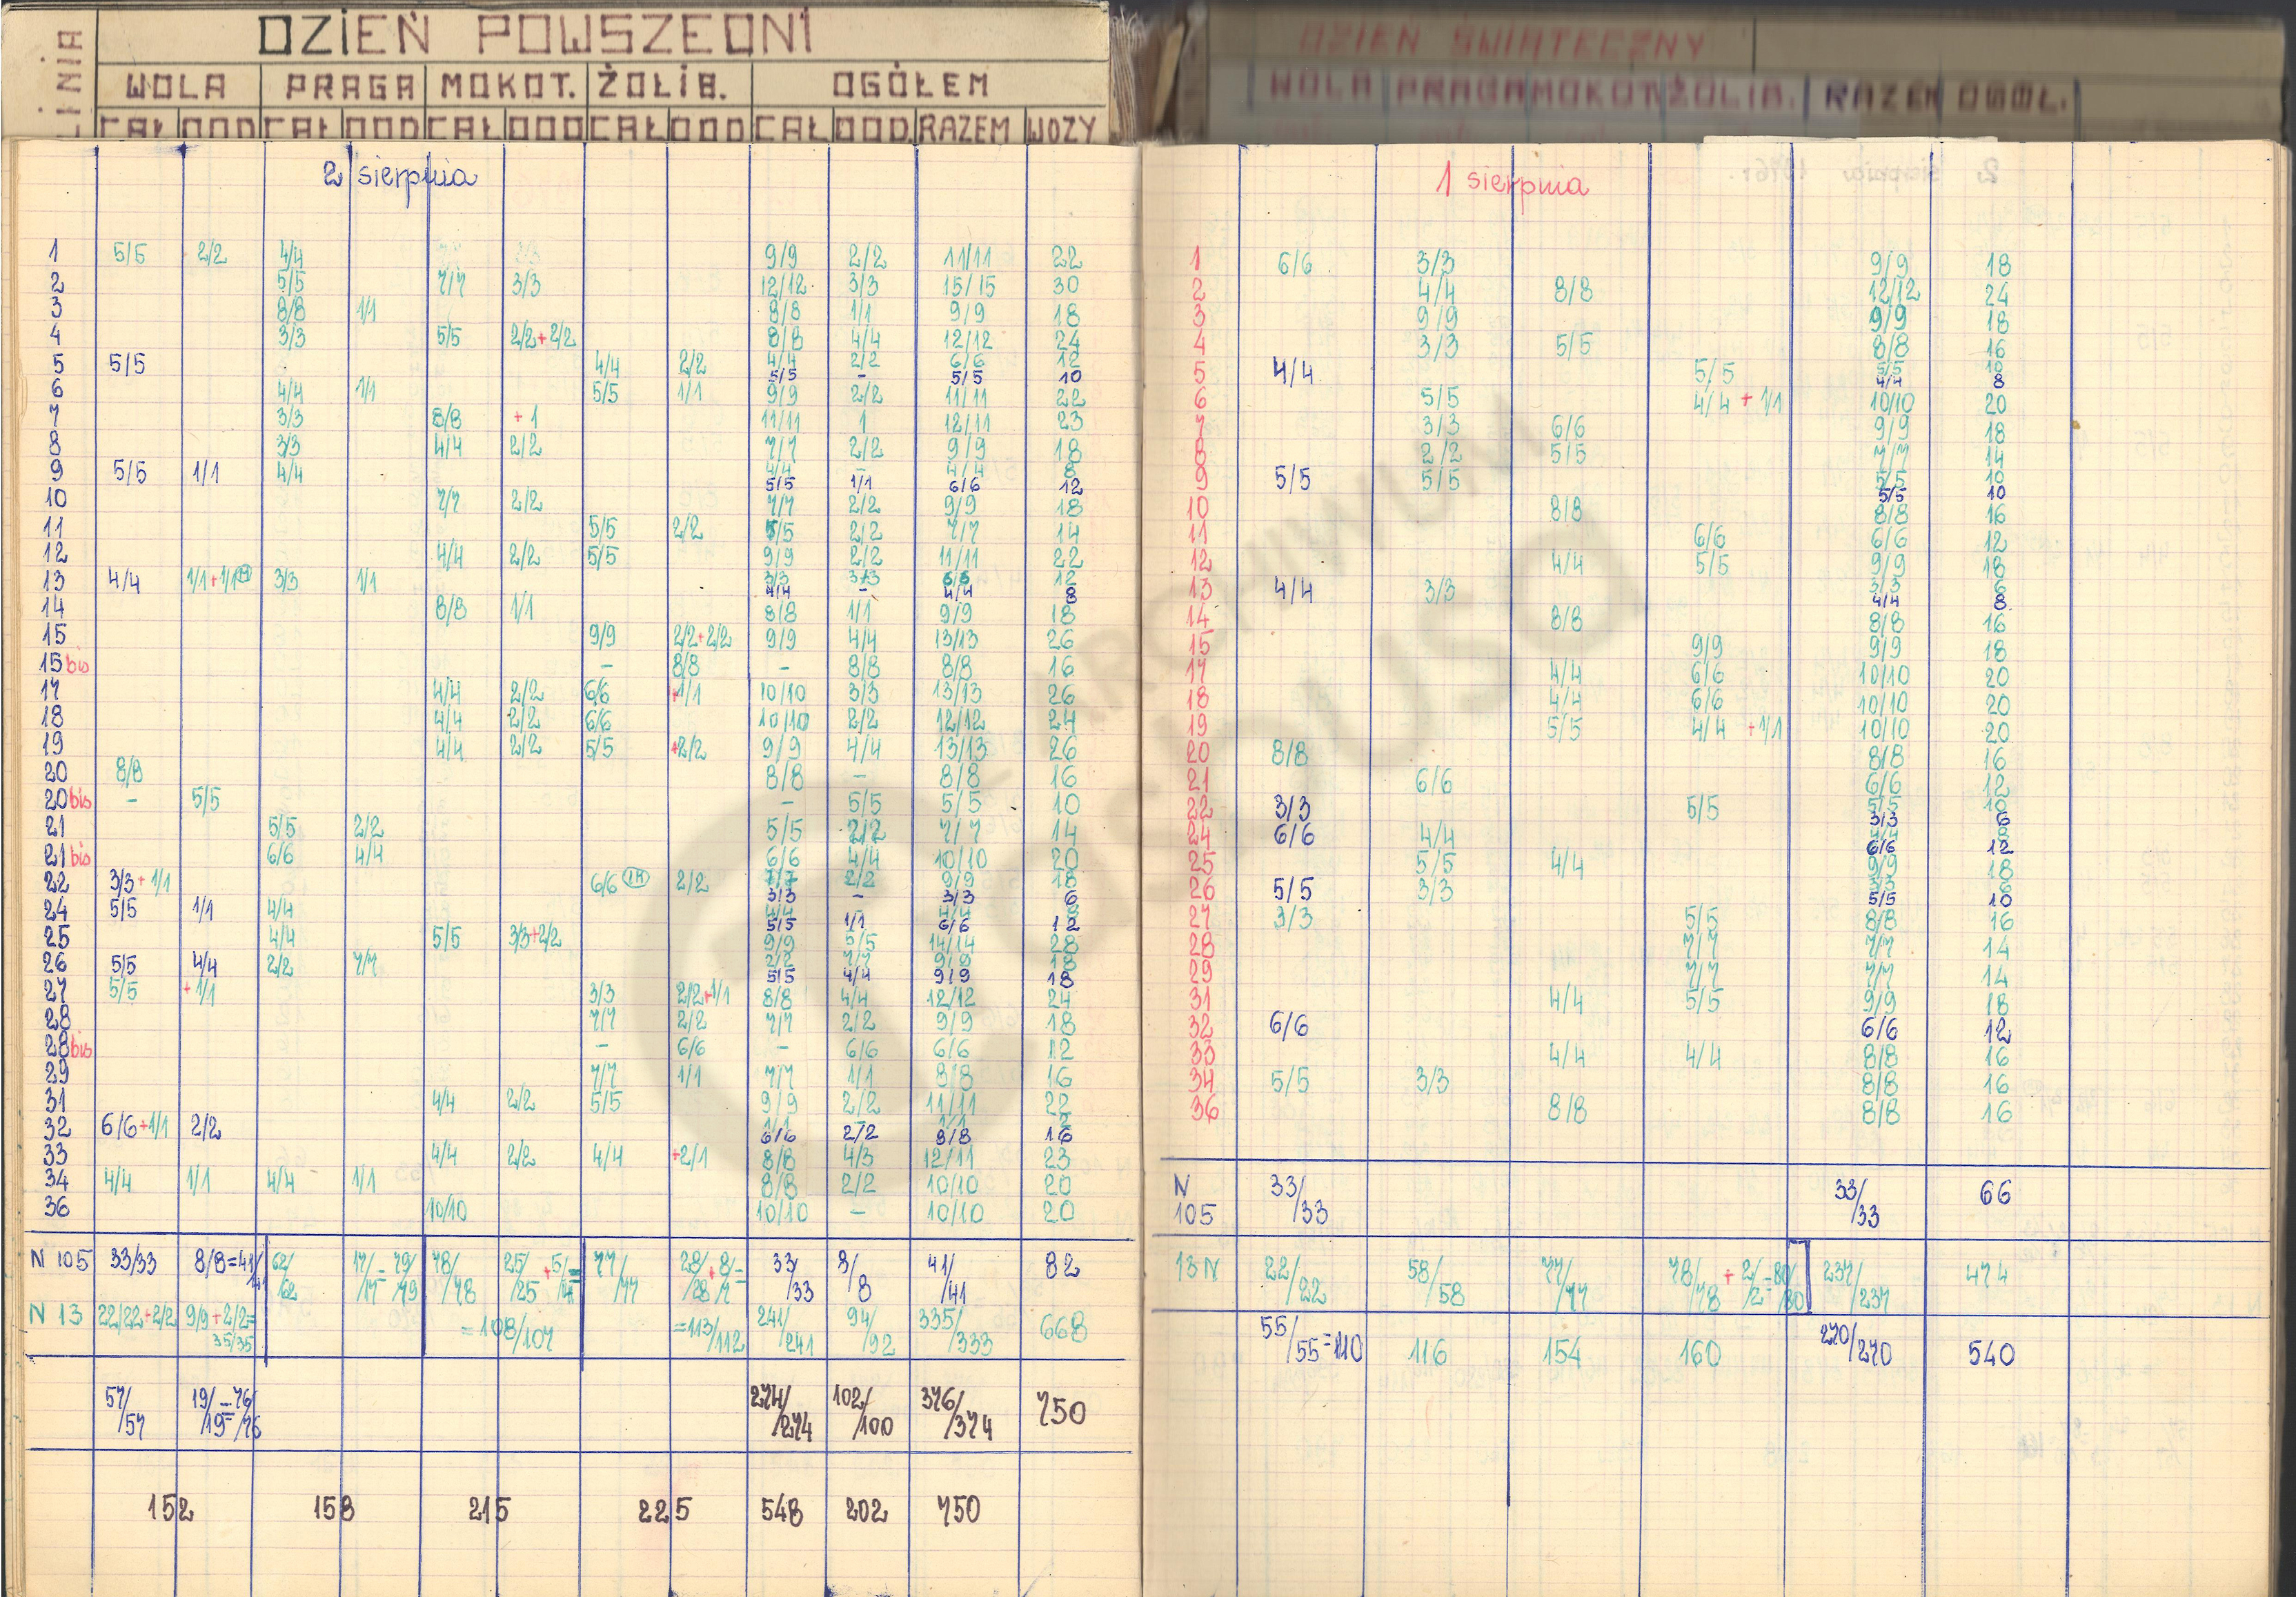 LINIA DZIEŃ POWSZEDNI
WOLA PRAGA MOKOT. ŻOLIB. OGÓŁEM
CAŁ DOD CAŁ DOD CAŁ DOD CAŁ DOD CAŁ DOD. RAZEM WOZY
2 sierpnia
1 5/5 2/2 4/4 9/9 2/2 11/11 22
2 5/5 7/7 3/3 12/12 3/3 15/15 30
3 8/8 1/1 8/8 1/1 9/9 18
4 3/3 5/5 2/2+2/2 8/8 4/4 12/12 24
5 5/5 4/4 2/2 4/4 2/2 6/6 12
5/5 - 5/5 10
6 4/4 1/1 5/5 1/1 9/9 2/2 11/11 22
7 3/3 8/8 +1 11/11 1 12/11 23
8 3/3 4/4 2/2 7/7 2/2 9/9 18
9 5/5 1/1 4/4 4/4 - 4/4 8
5/5 1/1 6/6 12
10 7/7 2/2 7/7 2/2 9/9 18
11 5/5 2/2 5/5 2/2 7/7 14
12 4/4 2/2 5/5 9/9 2/2 11/11 22
13 4/4 1/1+1/1 3/3 1/1 3/3 3/3 6/6 12
4/4 - 4/4 8
14 8/8 1/1 8/8 1/1 9/9 18
15 9/9 2/2+2/2 9/9 4/4 13/13 26
15bis - 8/8 - 8/8 8/8 16
17 4/4 2/2 6/6 +1/1 10/10 3/3 13/13 26
18 4/4 2/2 6/6 10/10 2/2 12/12 24
19 4/4 2/2 5/5 +2/2 9/9 4/4 13/13 26
20 8/8 8/8 - 8/8 16
20bis - 5/5 - 5/5 5/5 10
21 5/5 2/2 5/5 2/2 7/7 14
21bis 6/6 4/4 6/6 4/4 10/10 20
22 3/3+1/1 6/6 2/2 7/7 2/2 9/9 18
3/3 - 3/3 6
24 5/5 1/1 4/4 4/4 - 4/4 8
5/5 1/1 6/6 12
25 4/4 5/5 3/3+2/2 9/9 5/5 14/14 28
26 5/5 4/4 2/2 7/7 2/2 7/7 9/9 18
5/5 4/4 9/9 18
27 5/5 +1/1 3/3 2/2+1/1 8/8 4/4 12/12 24
28 7/7 2/2 7/7 2/2 9/9 18
28bis - 6/6 - 6/6 6/6 12
29 7/7 1/1 7/7 1/1 8/8 16
31 4/4 2/2 5/5 9/9 2/2 11/11 22
32 6/6+1/1 2/2 1/1 - 1/1 2
6/6 2/2 8/8 16
33 4/4 2/2 4/4 +2/1 8/8 4/3 12/11 23
34 4/4 1/1 4/4 1/1 8/8 2/2 10/10 20
36 10/10 10/10 - 10/10 20
N 105 33/33 8/8=41/41 62/62 17/17=79/79 78/78 25/25+5/4= 77/77 28/28+8/7= 33/33 8/8 41/41 82
N 13 22/22+2/2 9/9+2/2=35/35 =108/107 =113/112 241/241 94/92 335/333 668
57/57 19/19=76/76 274/274 102/100 376/374 750
152 158 215 225 548 202 750
DZIEŃ ŚWIĄTECZNY
WOLA PRAGA MOKOT ŻOLIB. RAZEM OGÓŁ.
1 sierpnia
1 6/6 3/3 9/9 18
2 4/4 8/8 12/12 24
3 9/9 9/9 18
4 3/3 5/5 8/8 16
5 4/4 5/5 5/5 10
4/4 8
6 5/5 4/4 + 1/1 10/10 20
7 3/3 6/6 9/9 18
8 2/2 5/5 7/7 14
9 5/5 5/5 5/5 10
5/5 10
10 8/8 8/8 16
11 6/6 6/6 12
12 4/4 5/5 9/9 18
13 4/4 3/3 3/3 6
4/4 8
14 8/8 8/8 16
15 9/9 9/9 18
17 4/4 6/6 10/10 20
18 4/4 6/6 10/10 20
19 5/5 4/4 +1/1 10/10 20
20 8/8 8/8 16
21 6/6 6/6 12
22 3/3 5/5 5/5 10
3/3 6
24 6/6 4/4 4/4 8
6/6 12
25 5/5 4/4 9/9 18
26 5/5 3/3 3/3 6
5/5 10
27 3/3 5/5 8/8 16
28 7/7 7/7 14
29 7/7 7/7 14
31 4/4 5/5 9/9 18
32 6/6 6/6 12
33 4/4 4/4 8/8 16
34 5/5 3/3 8/8 16
36 8/8 8/8 16
N 105 33/33 33/33 66
13N 22/22 58/58 77/77 78/78 + 2/2=80/80 237/237 474
55/55=110 116 154 160 270/270 540
© ARCHIWUM